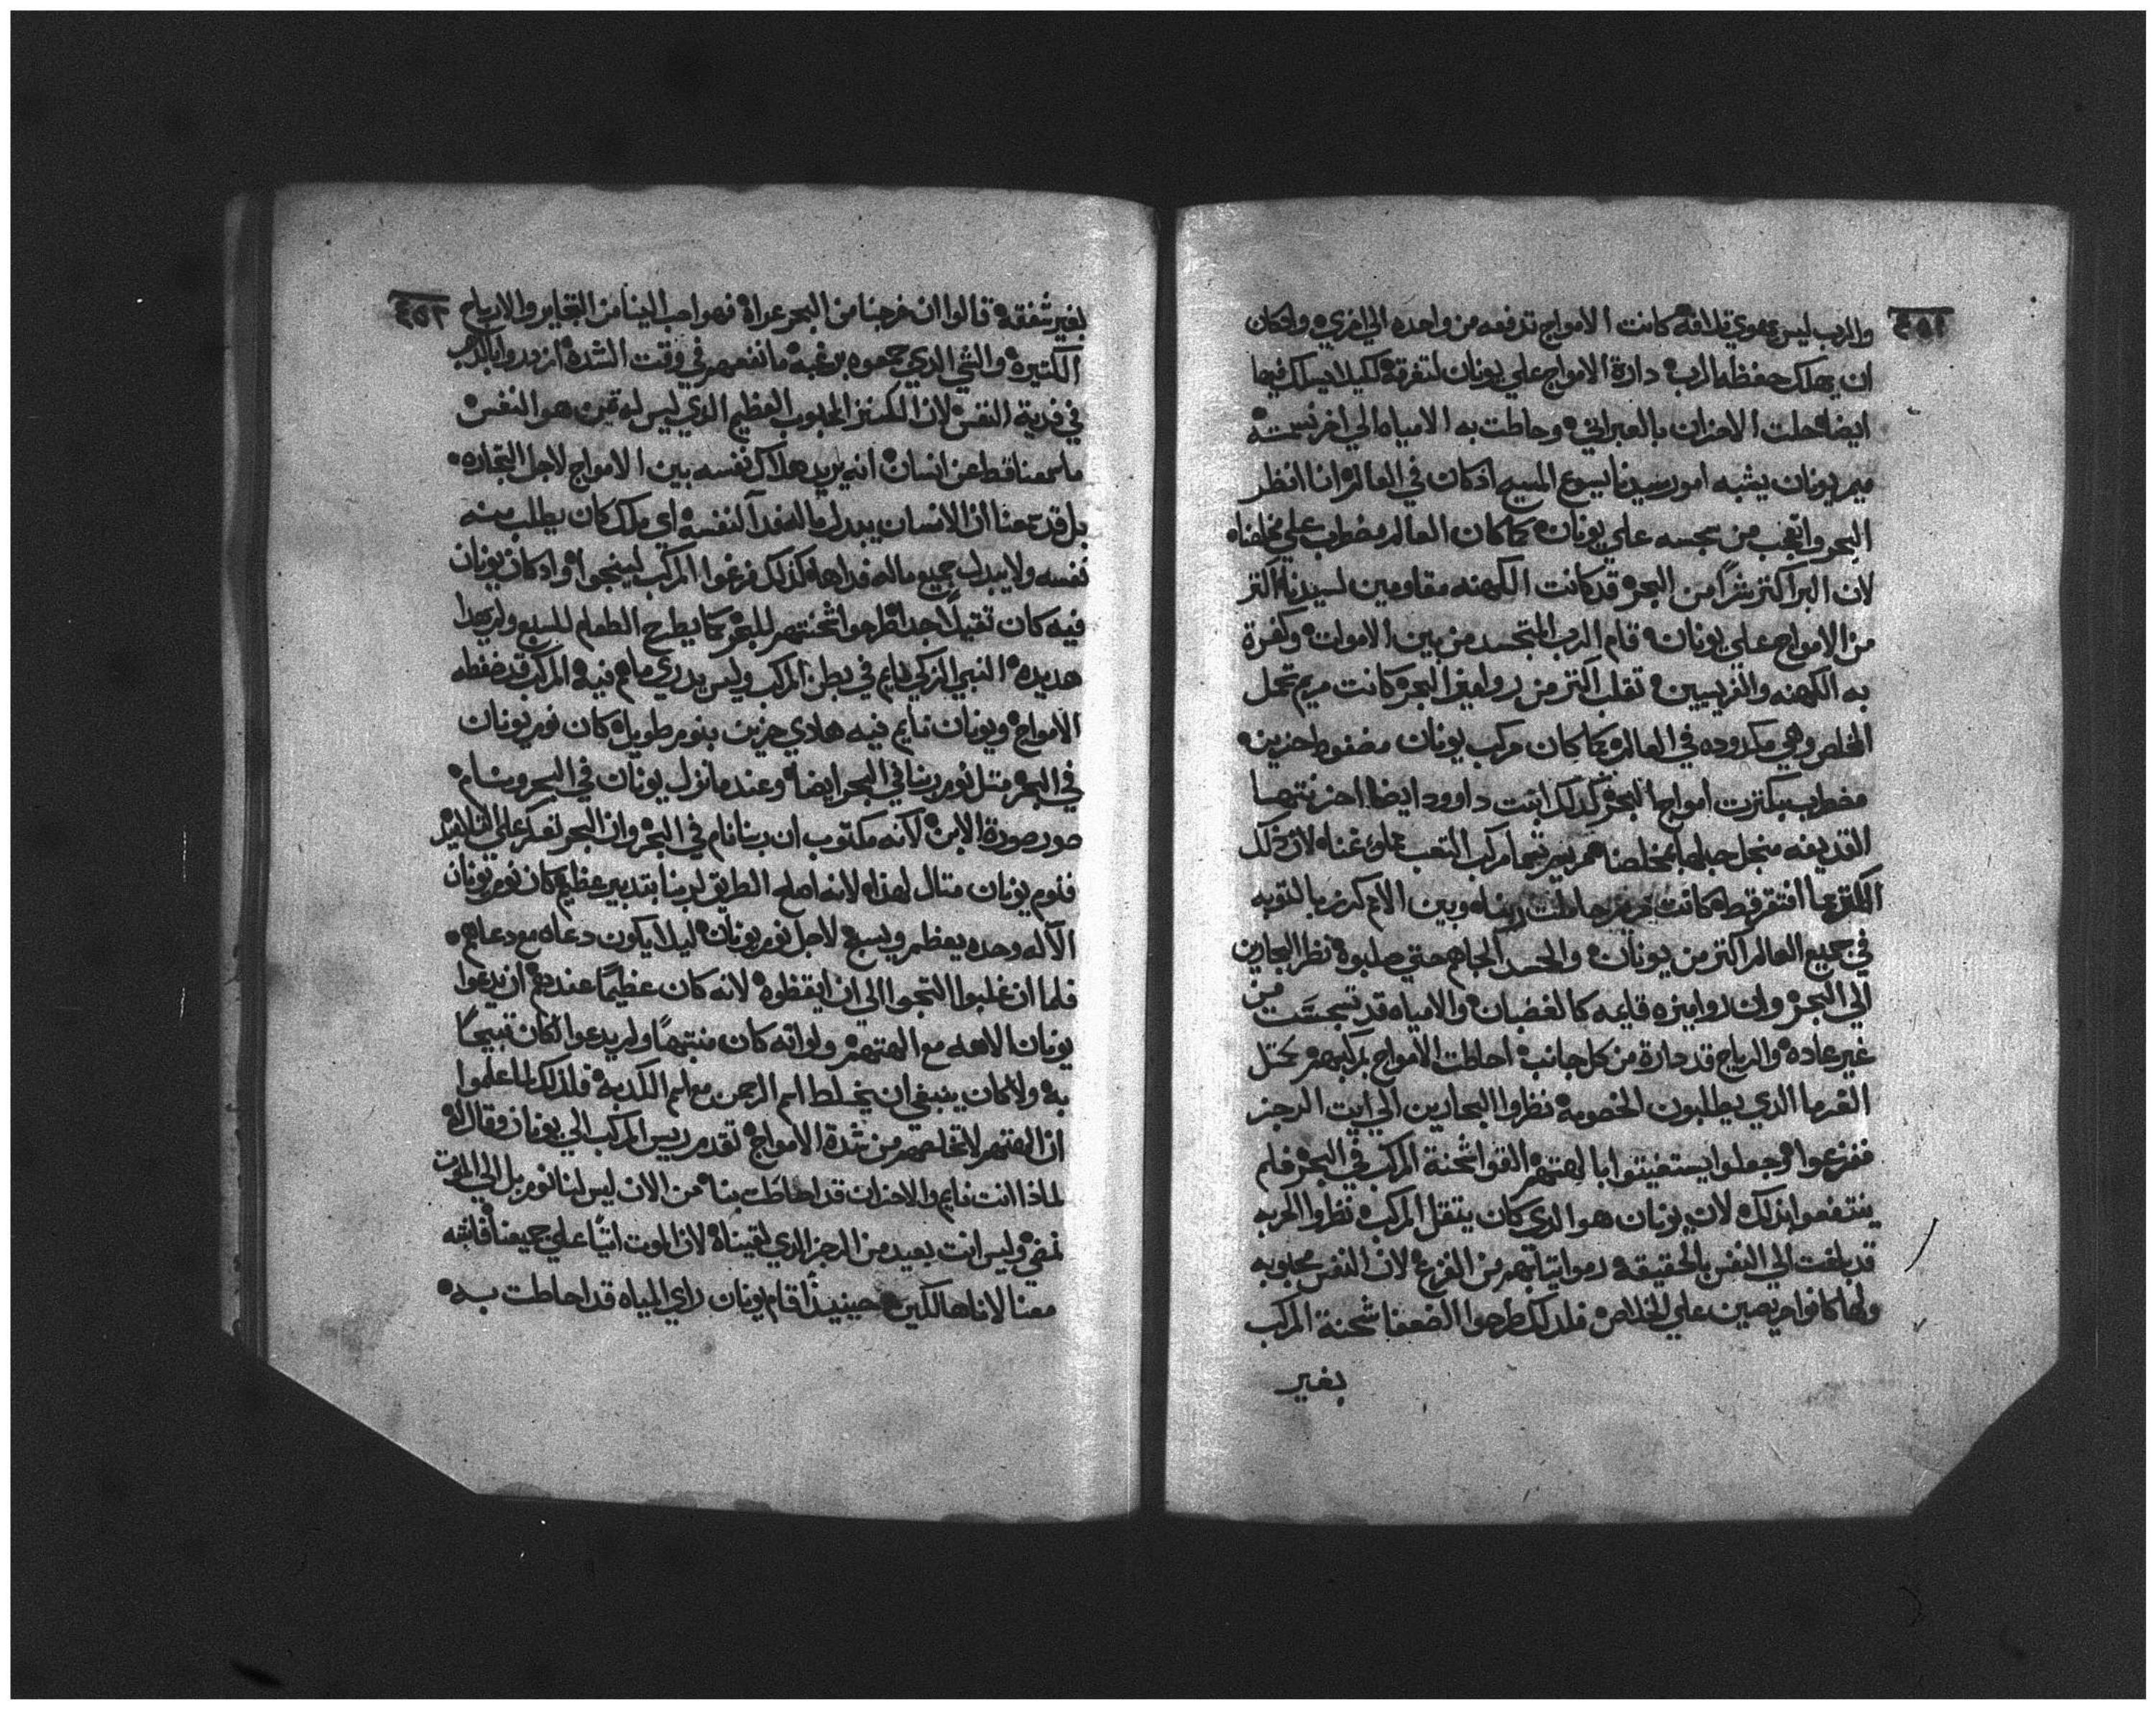 والرب ليس يهوي تلافه كانت الامواج تدفعه من واحده الي اخري ولو كان
ان يهلك حفظه الرب دارة الامواج علي يونان لتغرقه لكيلا يسلك فيها
ايضا حلت الاحزان بالعبراني وحاطت به الامياه الي اخر نسمته
يونان يشبه امور سيدنا يسوع المسيح اذ كان في العالم انا انظر
البحر واتعجب من سجسه علي يونان كما كان العالم مضطرب علي مخلصنا
لان البر اكتر شرًا من البحر قد كانت الكهنه مقاومين لسيدنا اكتر
من الامواج علي يونان قام الرب المتجسد من بين الاموات وكفرة
به الكهنه والفريسيين تقلب اكتر من روامز البحر كانت مريم تحمل
المخلص وهي مكدوده في العالم كما كان مركب يونان مضغوط حزين
مضطرب بكترت امواج البحر كدلك ابنت داوود ايضا احزنتهم
في جميع العالم اكتر من يونان والحسد الجاهم حتي صلبوه نظر البحارين
الي البحر وان روامزه قايمه كالغضبان والامياه قد تسجست من
غير عاده والرياح قد دارة من كل جانب احاطت الامواج بمركبهم بمتل
الغرما الدي يطلبون الخصومة نظروا البحارين الي ايت الرجز
ففزعوا وجعلوا يستغيتوا بالهتهم القوا شحنة المركب في البحر فلم
ينتفعوا بذلك لان يونان هو الدي كان يتقل المركب نظروا الحرب
قد بلغت الي النفس بالحقيقه رموا تيابهم من الفزع لان النفس محبوبه
ولما كانوا حريصين علي الخلاص فلدلك طرحوا الضعفا شحنة المركب
بغير
بغير شفقه قالوا ان خرجنا من البحر عراة فهو احب الينا من التجاير والارباح
الكتيرة والشي الدي جمعوه برغبه ما نفعهم في وقت الشدة ازدروا بالدهب
في فدية النفس لان الكنز المحبوب العظيم الدي ليس له تمن هو النفس
ما سمعنا قط عن انسان انه يريد هلاك نفسه بين الامواج لاجل التجاره
بل قد سمعنا ان الانسان يبدل ماله فدآ لنفسه اي ملك كان يطلب منه
نفسه ولا يبدل جميع ماله فداها كذلك فرغوا المركب لينجوا واد كان يونان
فيه كان تقيلًا جدا طرحوا شحنتهم للبحر كما يطرح الطعام للسبع ولم يهدا
هديره النبي الزكي نايم في بطن المركب وليس يدري ما هم فيه المركب قد ضغطه
الامواج ويونان نايم فيه هادي حزين بنوم طويل كان نوم يونان
في البحر متل نوم ربنا في البحر ايضا وعندما نزل يونان في البحر ونام
صور صورة الابن لانه مكتوب ان ربنا نام في البحر وان البحر تعكر علي التلاميد
فنوم يونان متال لهذا لانه اصلح الطريق لربنا بتدبير عظيم كان نوم يونان
الاله وحده يعظم ويسبح لاجل نوم يونان ليلا يكون دعاه مع دعاهم
فلما ان غلبوا التجوا الي ان ايقظوه لانه كان عظيمًا عندهم ان يدعوا
يونان الاهه مع الهتهم ولو انه كان منتبهًا ولم يدعوا لكان قبيحًا
به ولا كان ينبغي ان يختلط اسم الرحمن مع اسم الكدبه فلذلك لما علموا
ان الهتهم لا تخلصهم من شدة الامواج تقدم ريس المركب الي يونان وقال له
لماذا انت نايم والاحزان قد احاطت بنا من الان ليس لنا نوم بل الي الموت
نمضي وليس انت بعيد من الرجز الدي لقيناه لان الموت اتيًا علي جميعنا فانتبه
معنا لاننا هالكين حينيذًا قام يونان راي المياه قد احاطت به